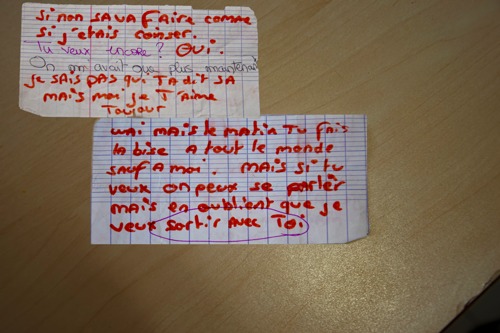 si non SA VA FAIRE comme
si j'etais coinser.
Tu veux encore? OUI.
On m avait dis plus maintenant
je SAIS PAS qui TA dit SA
MAIS moi je T'Aime
Toujour
uai MAIS le MATIN TU FAIS
la bise A tout le monde
SAUF A moi. MAIS si tu
veux on peux se parler
MAIS en oublient que je
veux sortir avec Toi